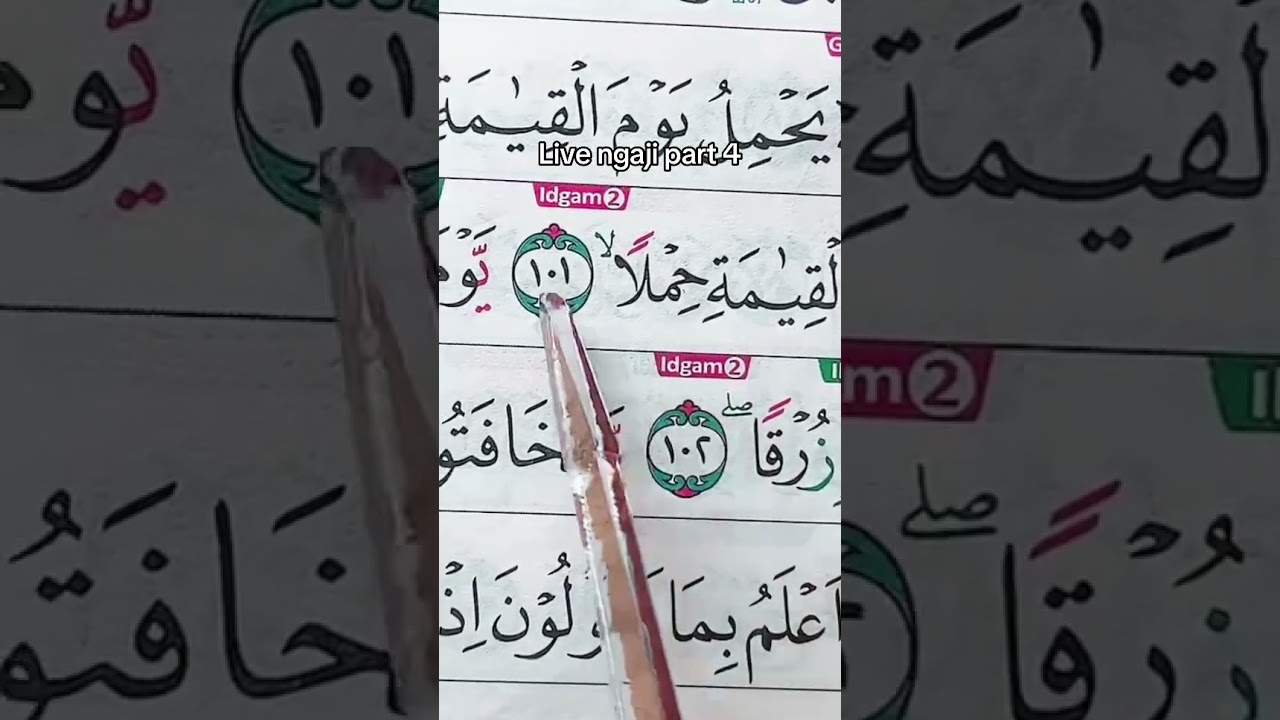 يَحْمِلُ يَوْمَ الْقِيٰمَةِ
Live ngaji part 4
Idgam 2
لْقِيٰمَةِ حِمْلًاۙ ١٠١ يَّوْمَ
Idgam 2
زُرْقًا ۖ ١٠٢ خَافَتُو
اَعْلَمُ بِمَا لُوْنَ اِذْ